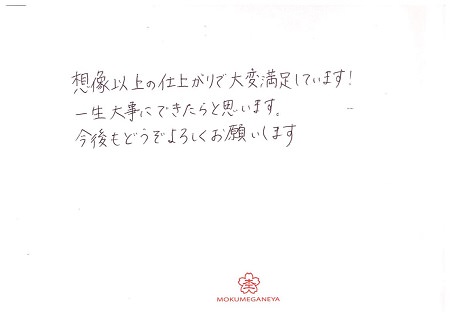 想像以上の仕上がりで大変満足しています!
一生大事にできたらと思います。
今後もどうぞよろしくお願いします
MOKUMEGANEYA